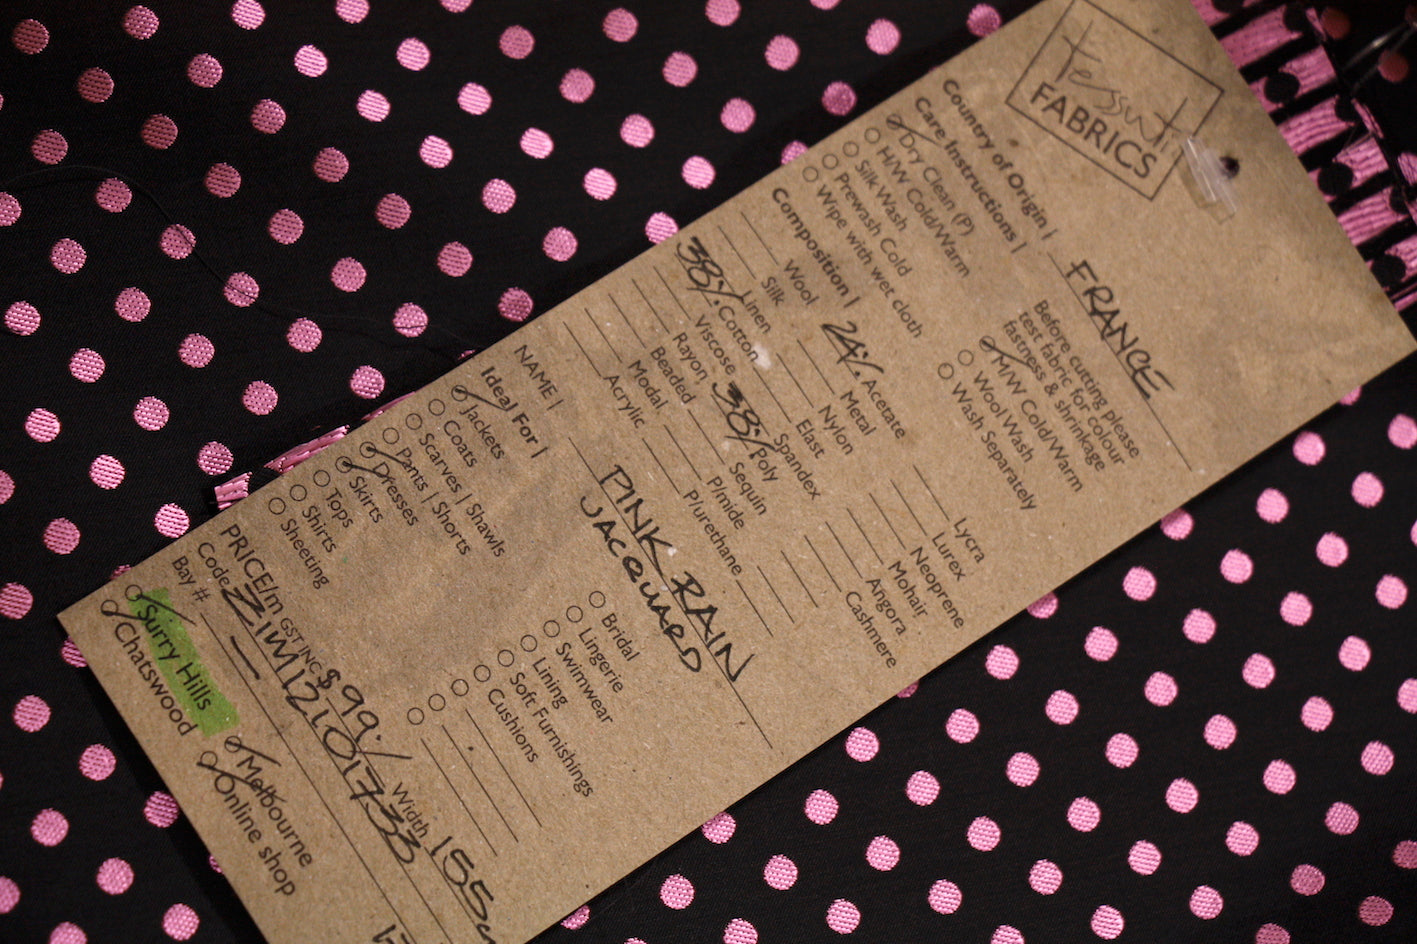 Tessuti
FABRICS
Country of Origin | FRANCE
Care Instructions |
Dry Clean (P)
H/W Cold/Warm
Silk Wash
Prewash Cold
Wipe with wet cloth
Before cutting please
test fabric for colour
fastness & shrinkage
M/W Cold/Warm
Wool Wash
Wash Separately
Composition |
Wool
Silk
Linen
38% Cotton
Viscose
Rayon
Beaded
Modal
Acrylic
24% Acetate
Metal
Nylon
Elast
Spandex
38% Poly
Sequin
P/mide
P/urethane
Lycra
Lurex
Neoprene
Mohair
Angora
Cashmere
NAME | PINK RAIN
JACQUARD
Ideal For |
Jackets
Coats
Scarves | Shawls
Pants | Shorts
Dresses
Skirts
Tops
Shirts
Sheeting
Bridal
Lingerie
Swimwear
Lining
Soft Furnishings
Cushions
PRICE/m GST INC $99./ Width 155c
Code ZIM12101733
Bay #
Surry Hills
Chatswood
Melbourne
Online shop